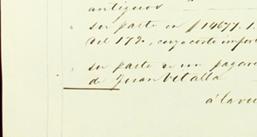 antiguos
su parte en $ 14677.1.
del 172, cuyo costo impor
su parte en un pagaré
de Juan Vilalta
á la vu